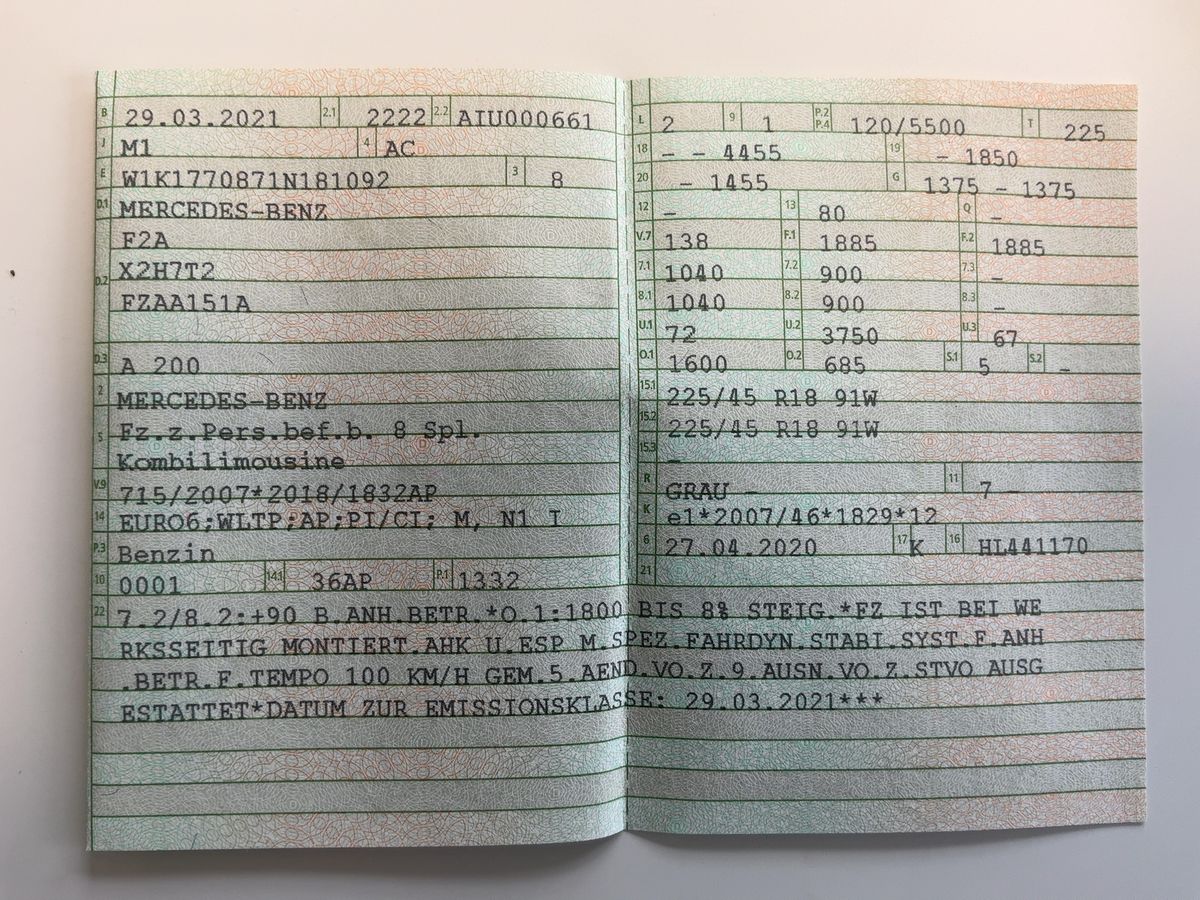 B 29.03.2021 2.1 2222 2.2 AIU000661
J M1 4 AC
E W1K1770871N181092 3 8
D.1 MERCEDES-BENZ
F2A
D.2 X2H7T2
FZAA151A
D.3 A 200
2 MERCEDES-BENZ
5 Fz.z.Pers.bef.b. 8 Spl.
Kombilimousine
V.9 715/2007*2018/1832AP
14 EURO6;WLTP;AP;PI/CI; M, N1 I
P.3 Benzin
10 0001 14.1 36AP P.1 1332
L 2 9 1 P.2 P.4 120/5500 T 225
18 - - 4455 19 - 1850
20 - 1455 G 1375 - 1375
12 - 13 80 Q -
V.7 138 F.1 1885 F.2 1885
7.1 1040 7.2 900 7.3 -
8.1 1040 8.2 900 8.3 -
U.1 72 U.2 3750 U.3 67
O.1 1600 O.2 685 S.1 5 S.2 -
15.1 225/45 R18 91W
15.2 225/45 R18 91W
15.3 -
R GRAU - 11 7 -
K e1*2007/46*1829*12
6 27.04.2020 17 K 16 HL441170
21
22 7.2/8.2:+90 B.ANH.BETR.*O.1:1800 BIS 8% STEIG.*FZ IST BEI WE
RKSSEITIG MONTIERT.AHK U.ESP M.SPEZ.FAHRDYN.STABI.SYST.F.ANH
.BETR.F.TEMPO 100 KM/H GEM.5.AEND.VO.Z.9.AUSN.VO.Z.STVO AUSG
ESTATTET*DATUM ZUR EMISSIONSKLASSE: 29.03.2021***